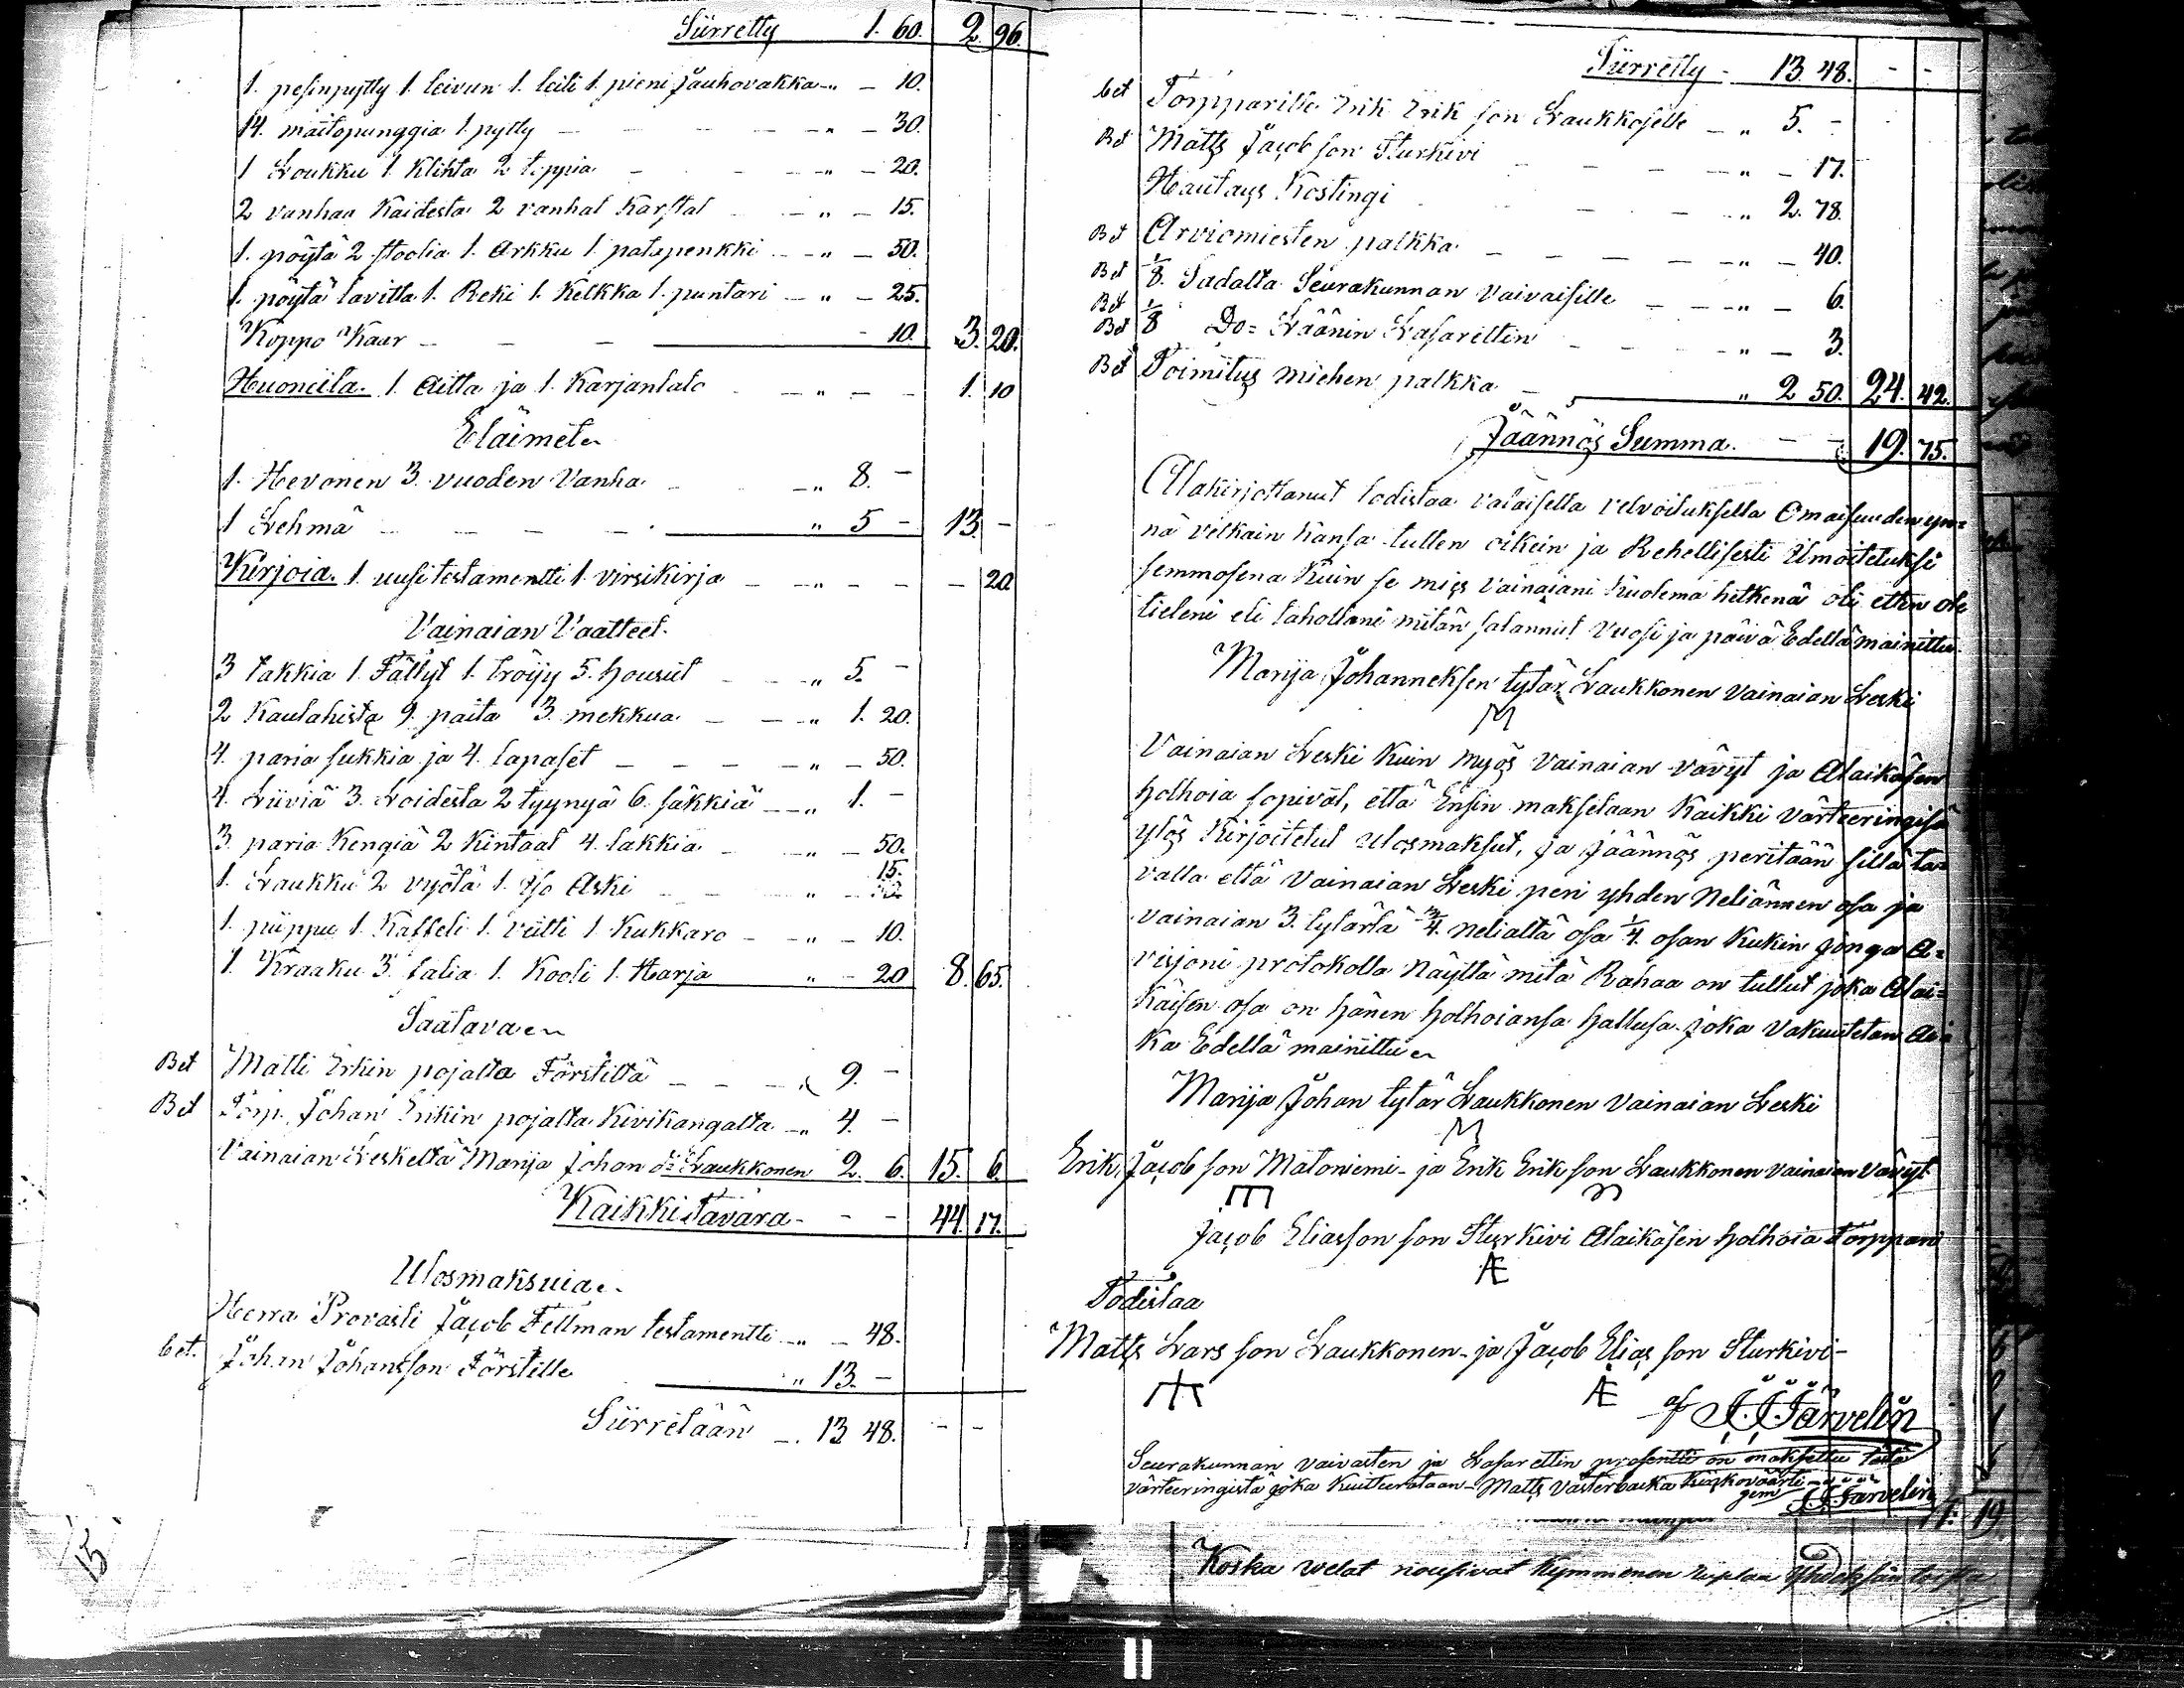 Siirretty 1. 60. 2. 96.
1. pesinpytty 1. leivun 1. leili 1. pieni Jauhovakka - " - 10.
14. maitopunggia 1. pytty - - - " - 30.
1 Loukku 1. Klihta 2 toppia - - - " - 20.
2 vanhaa Kaidesta 2 vanhat Karstat - " - 15.
1. pöytä 2 stoolia 1. Arkku 1. patapenkki - " - 50.
1. pöytä lavitta 1. Reki 1. Kelkka 1. puntari - " - 25.
Koppo Kaar - - - 10. 3. 20.
Huoneita. 1. Aitta ja 1. Karjanlato - " - - 1. 10
Eläimet
1. Hevonen 3. vuoden Vanha - " 8. -
1 Lehmä - - - - " 5 - 13. -
Kirjoia. 1. uusi testamentti 1. virsikirja - " - - - 20.
Vainaian Vaatteet.
3 takkia 1. Fältyt 1. tröijy 5. housut - " 5. -
2 Kaulahista 9. paita 3. mekkua - - " 1. 20.
4. paria sukkia ja 4. lapaset - - - " - 50.
4. Liiviä 3. Loidesta 2 tyynyä 6. säkkiä - " 1. -
3. paria Kengiä 2 Kintaat 4. lakkia - " - 50.
1. Laukku 2 vyötä 1. Iso Aski - - " - 15.
1. piippu 1. Kaffeli 1. veitti 1 Kukkaro - " - 10.
1. Kraaku 3. talia 1. Kooli 1. Harja " - 20 8. 65.
Saatava
Bet Matti Erkin pojalta Förstiltä - - - " 9. -
Bet Torp. Johan Erikin pojalta Kivikangalta - " 4. -
Vainaian Leskeltä Marija Johan d:r Laukkonen 2. 6. 15. 6.
Kaikki tavara - - - 44. 17.
Ulosmaksuia
Herra Provasti Jacob Fellman testamentti - " - 48.
bet. Johan Johansson Förstille " 13. -
Siirretään - . 13 48. - -
Siirretty - 13. 48. - -
bet Torpparille Erik Erik son Laukkoselle - " 5. -
Bet Matts Jacob son Sturkivi - - - " - 17.
Hautaus Kostingi - - - " 2. 78.
Bet Arviomiesten palkka - - - - - " - 40.
Bet 1/8. Sadalta Seurakunnan Vaivaisille - - " - 6.
Bet
Bet 1/8 Do= Läänin Lasarettin - - - " - 3.
Bet Toimitus miehen palkka - " 2 50. 24. 42.
Jäännös Summa. - - 19. 75.
Alakirjottanut todistaa valaisella velvoituksella Omaisuuden yn=
nä velkain kansa tullen oikein ja Rehellisesti Ilmoitetuksi
semmosena Kuin se mies Vainaiani Kuolema hetkenä oli etten ole
tieteni eli tahollani mitän salannut Vuosi ja päivä Edellä mainittu.
Marija Johanneksen tytär Laukkonen Vainaian Leski
M
Vainaian Leski Kuin Myös Vainaian Vävyt ja Alaikäsen
holhoia sopivat, että Ensin maksetaan Kaikki Värteeringisä
ylös Kirjoitetut Ulosmaksut, ja Jäännös peritään sillä ta=
valla että Vainaian Leski peri yhden Neliännen osa ja
Vainaian 3. tytärtä 3/4. neliattä osa 1/4. osan Kukin Jonga A=
visjoni protokolla Näyttä mitä Rahaa on tullut joka Alai=
käisen osa on hänen holhoiansa hallusa. Joka Vakuutetan Ai=
ka Edellä mainittu
Marija Johan tytär Laukkonen Vainaian Leski
M
Erik Jacob son Matoniemi - ja Erik Erik son Laukkonen Vainaian Vävyt
Jacob Eliasson son Sturkivi Alaikäsen holhoia Torppari
Æ
Todistaa
Matts Lars son Laukkonen - ja Jacob Elias son Sturkivi -
Æ
af J. J. Järvelin
Seurakunnan vaivasten ja Lasarettin prosentti on maksettu tästä
värteeringistä joka Kuitteerataan - Matts Västerbacka Kirkovärti -
gem J. J. Järvelin
11. 19
Koska welat nousivat Kymmenen ruplaa Yhdeksäntoista
15